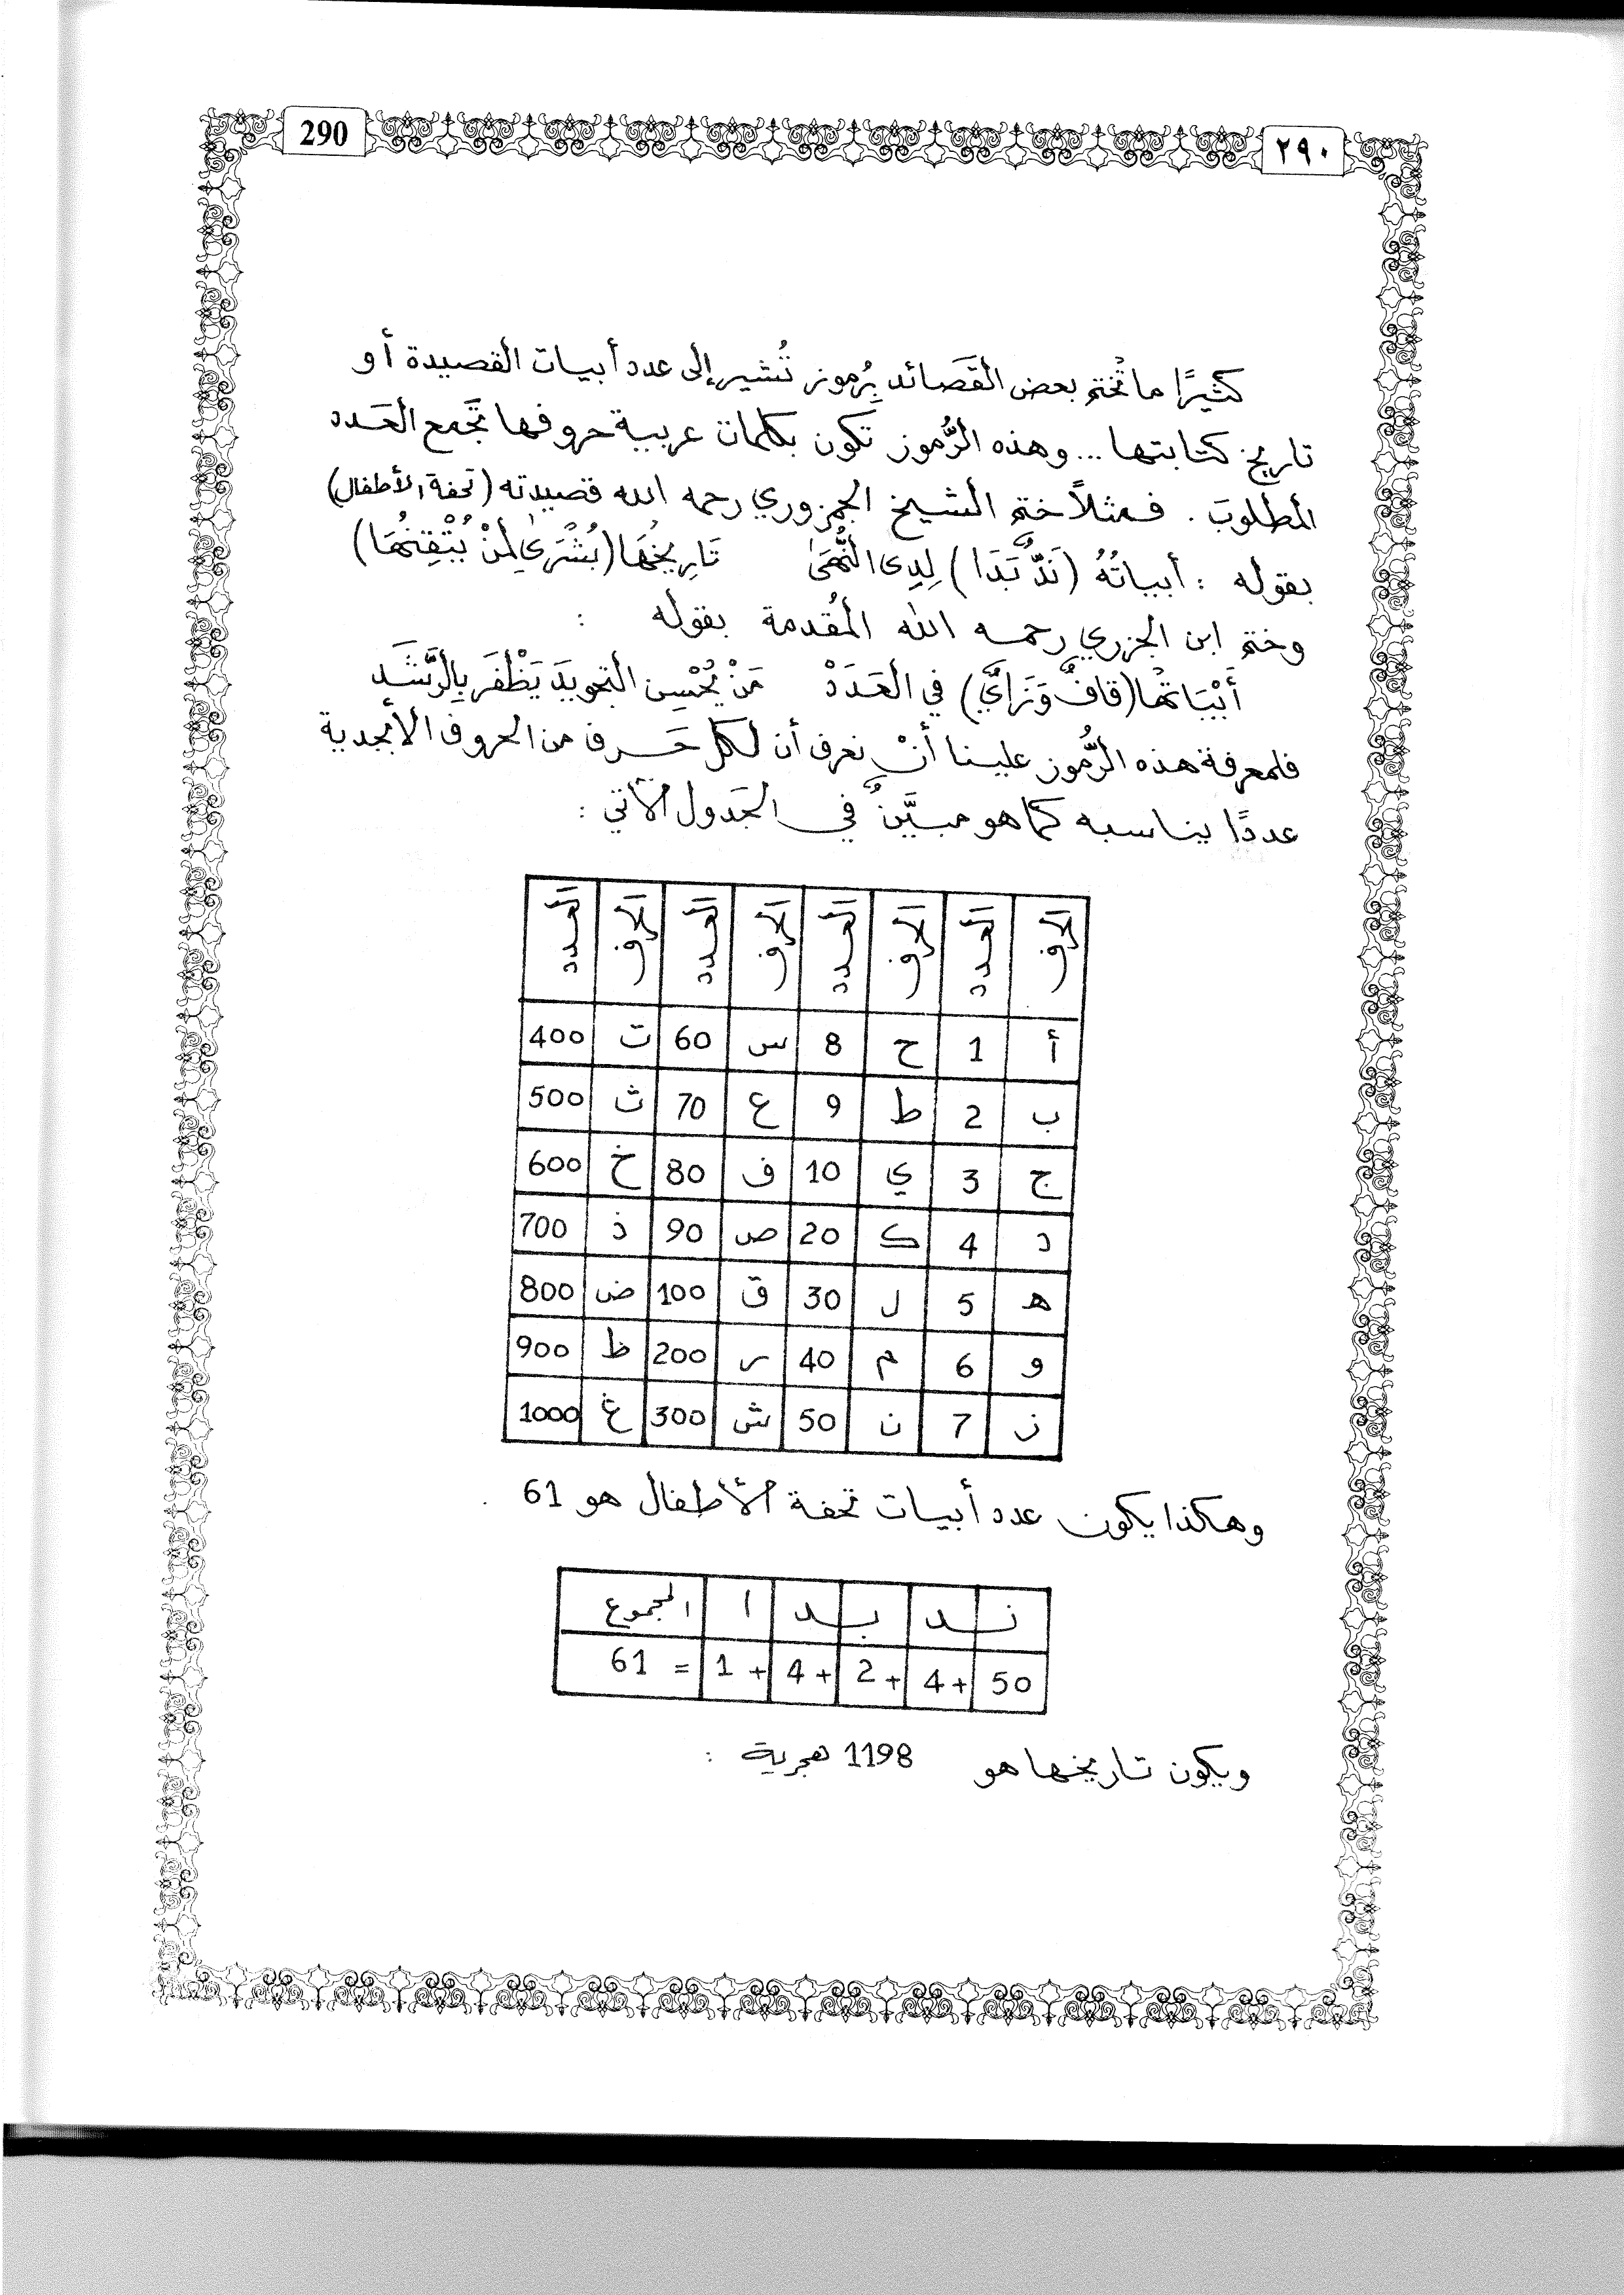 290
٢٩٠
كثيرًا ما تُختم بعض القَصائد بِرُموز تُشير إلى عدد أبيات القصيدة أو
تاريخ كتابتها ... وهذه الرُّموز تكون بكلمات عربية حروفها تَجمع العَدد
المطلوبَ . فمثلاً ختم الشيخ الجمزوري رحمه الله قصيدته (تحفة الأطفال)
بقوله : أبياتُهُ (نَدٌّ بَدَا) لِذِى النُّهَىٰ تَارِيخُهَا (بُشْرَىٰ لِمَنْ يُتْقِنُهَا)
وختم ابن الجزري رحمه الله المُقدمة بقوله :
أَبْيَاتُهَا (قافٌ وَزَايٌ) في العَدَدْ مَنْ يُحْسِنِ التجويدَ يَظْفَر بِالرَّشَد
فلمعرفة هذه الرُّموز علينا أنْ نعرف أن لكل حَرف من الحروف الأبجدية
عددًا يناسبه كما هو مبيَّنٌ في الجَدول الآتي :
الحرف العدد الحرف العدد الحرف العدد الحرف العدد
أ 1 ح 8 س 60 ت 400
ب 2 ط 9 ع 70 ث 500
ج 3 ي 10 ف 80 خ 600
د 4 ك 20 ص 90 ذ 700
ه 5 ل 30 ق 100 ض 800
و 6 م 40 ر 200 ظ 900
ز 7 ن 50 ش 300 غ 1000
وهكذا يكون عدد أبيات تحفة الأطفال هو 61 .
نــد بــد ا المجموع
50 + 4 + 2 + 4 + 1 = 61
ويكون تاريخها هو 1198 هجرية :